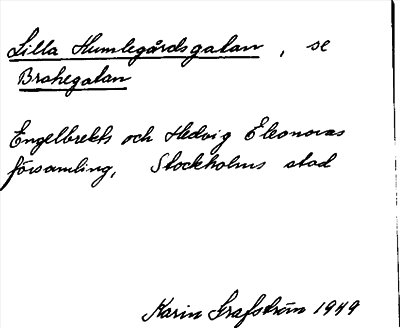 Lilla Humlegårdsgatan, se
Brahegatan
Engelbrekts och Hedvig Eleonoras
församling, Stockholms stad
Karin Grafström 1949